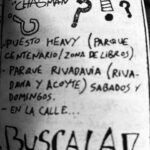 CHASMAN
? ? ?
-PUESTO HEAVY (PARQUE
CENTENARIO/ZONA DE LIBROS).
-PARQUE RIVADAVIA (RIVA-
DAVIA Y ACOYTE) SABADOS Y
DOMINGOS.
-EN LA CALLE...
BUSCALA